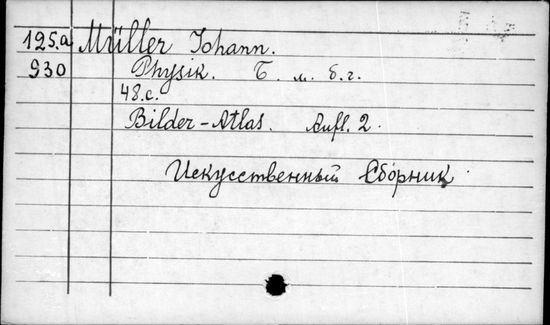 125.a Müller Johann.
930 Physik. Б. м. б. г.
48.c.
Bilder-Atlas. Aufl. 2.
Искусственный Сборник